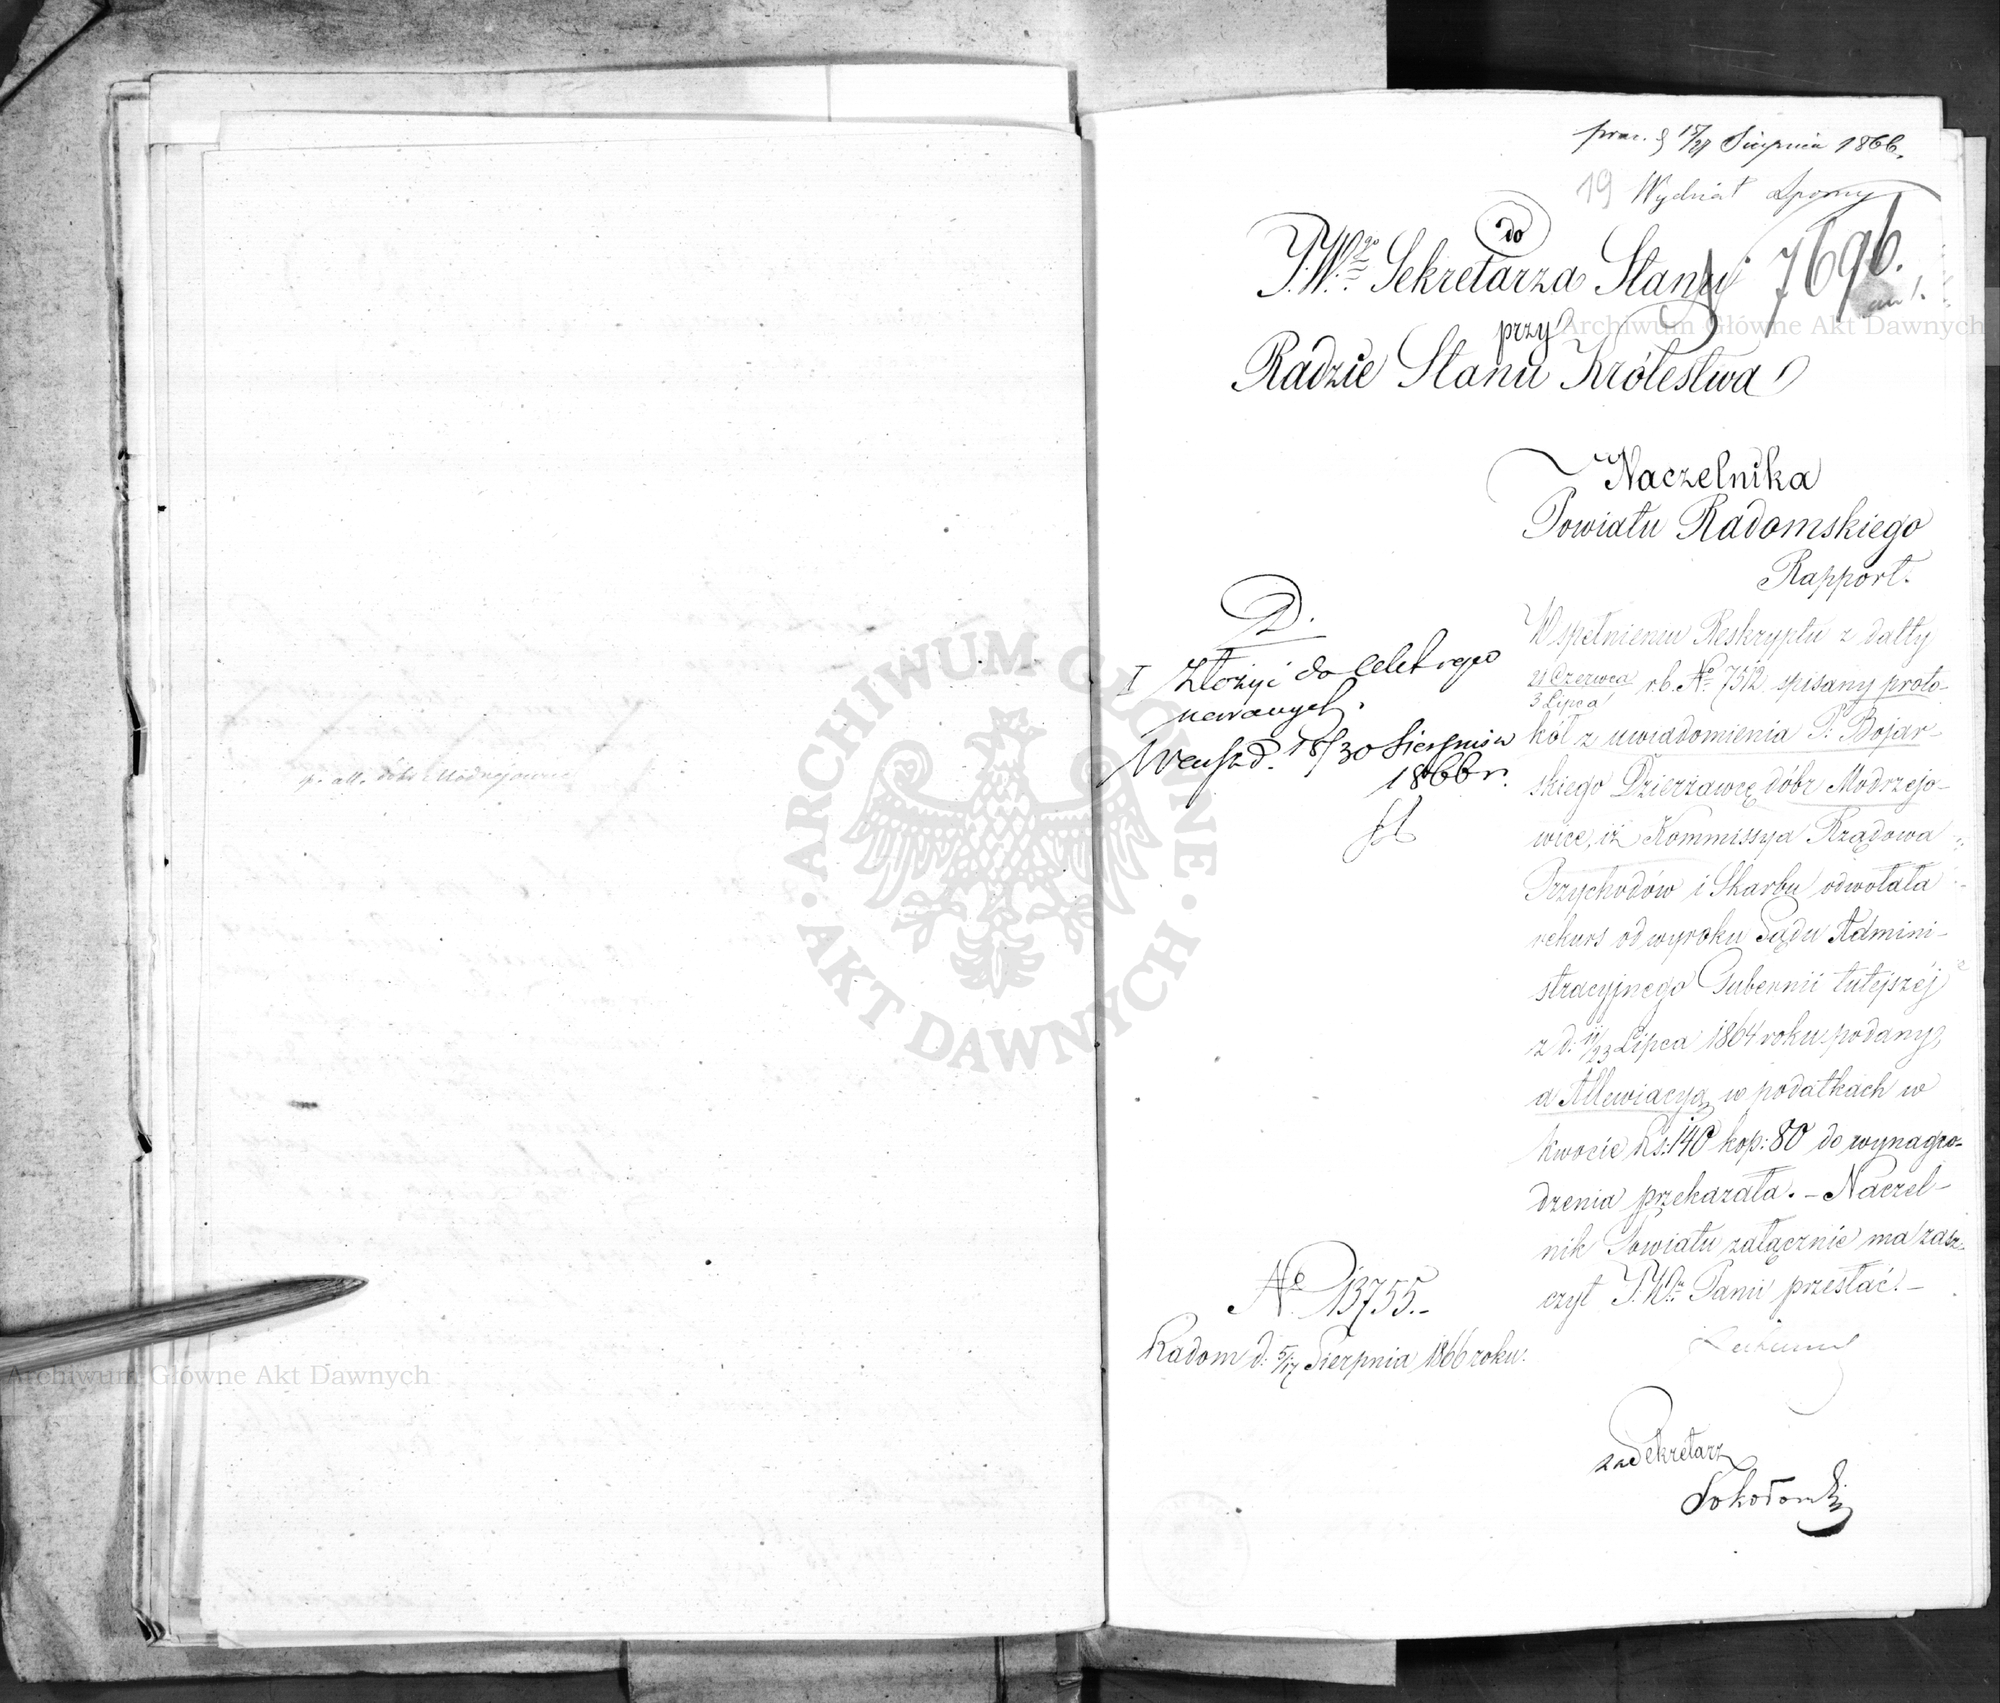 p. att. dóbr Modrzejowice
prez. d 15/27 Sierpnia 1866.
19 Wydział Sporny
do
J.W.go Sekretarza Stanu
7696.
przy
Radzie Stanu Królestwa
Naczelnika
Powiatu Radomskiego
Rapport.
W spełnieniu Reskryptu z datty
21 Czerwca / 3 Lipca r.b. No 7512 spisany proto-
kół z uwiadomienia P. Bojar-
skiego Dzierżawcę dóbr Modrzejo-
wice, iż Kommissya Rządowa
Przychodów i Skarbu odwołała
rekurs od wyroku Sądu Admini-
stracyjnego Gubernii tutejszéj
z d: 11/23 Lipca 1864 roku podany,
a Allewiacyą w podatkach w
kwocie Rs: 140 kop: 80 do wynagro-
dzenia przekazała. – Naczel-
nik Powiatu załącznie ma zasz-
czyt J.W. Panu przesłać. –
D.
I Złożyć do
Warsz d. 18/30 Sierpnia
1866 r.
No 13755.-
Radom d: 5/17 Sierpnia 1866 roku.
za Sekretarz
Sokołowski
ARCHIWUM GŁÓWNE AKT DAWNYCH
Archiwum Główne Akt Dawnych
Archiwum Główne Akt Dawnych